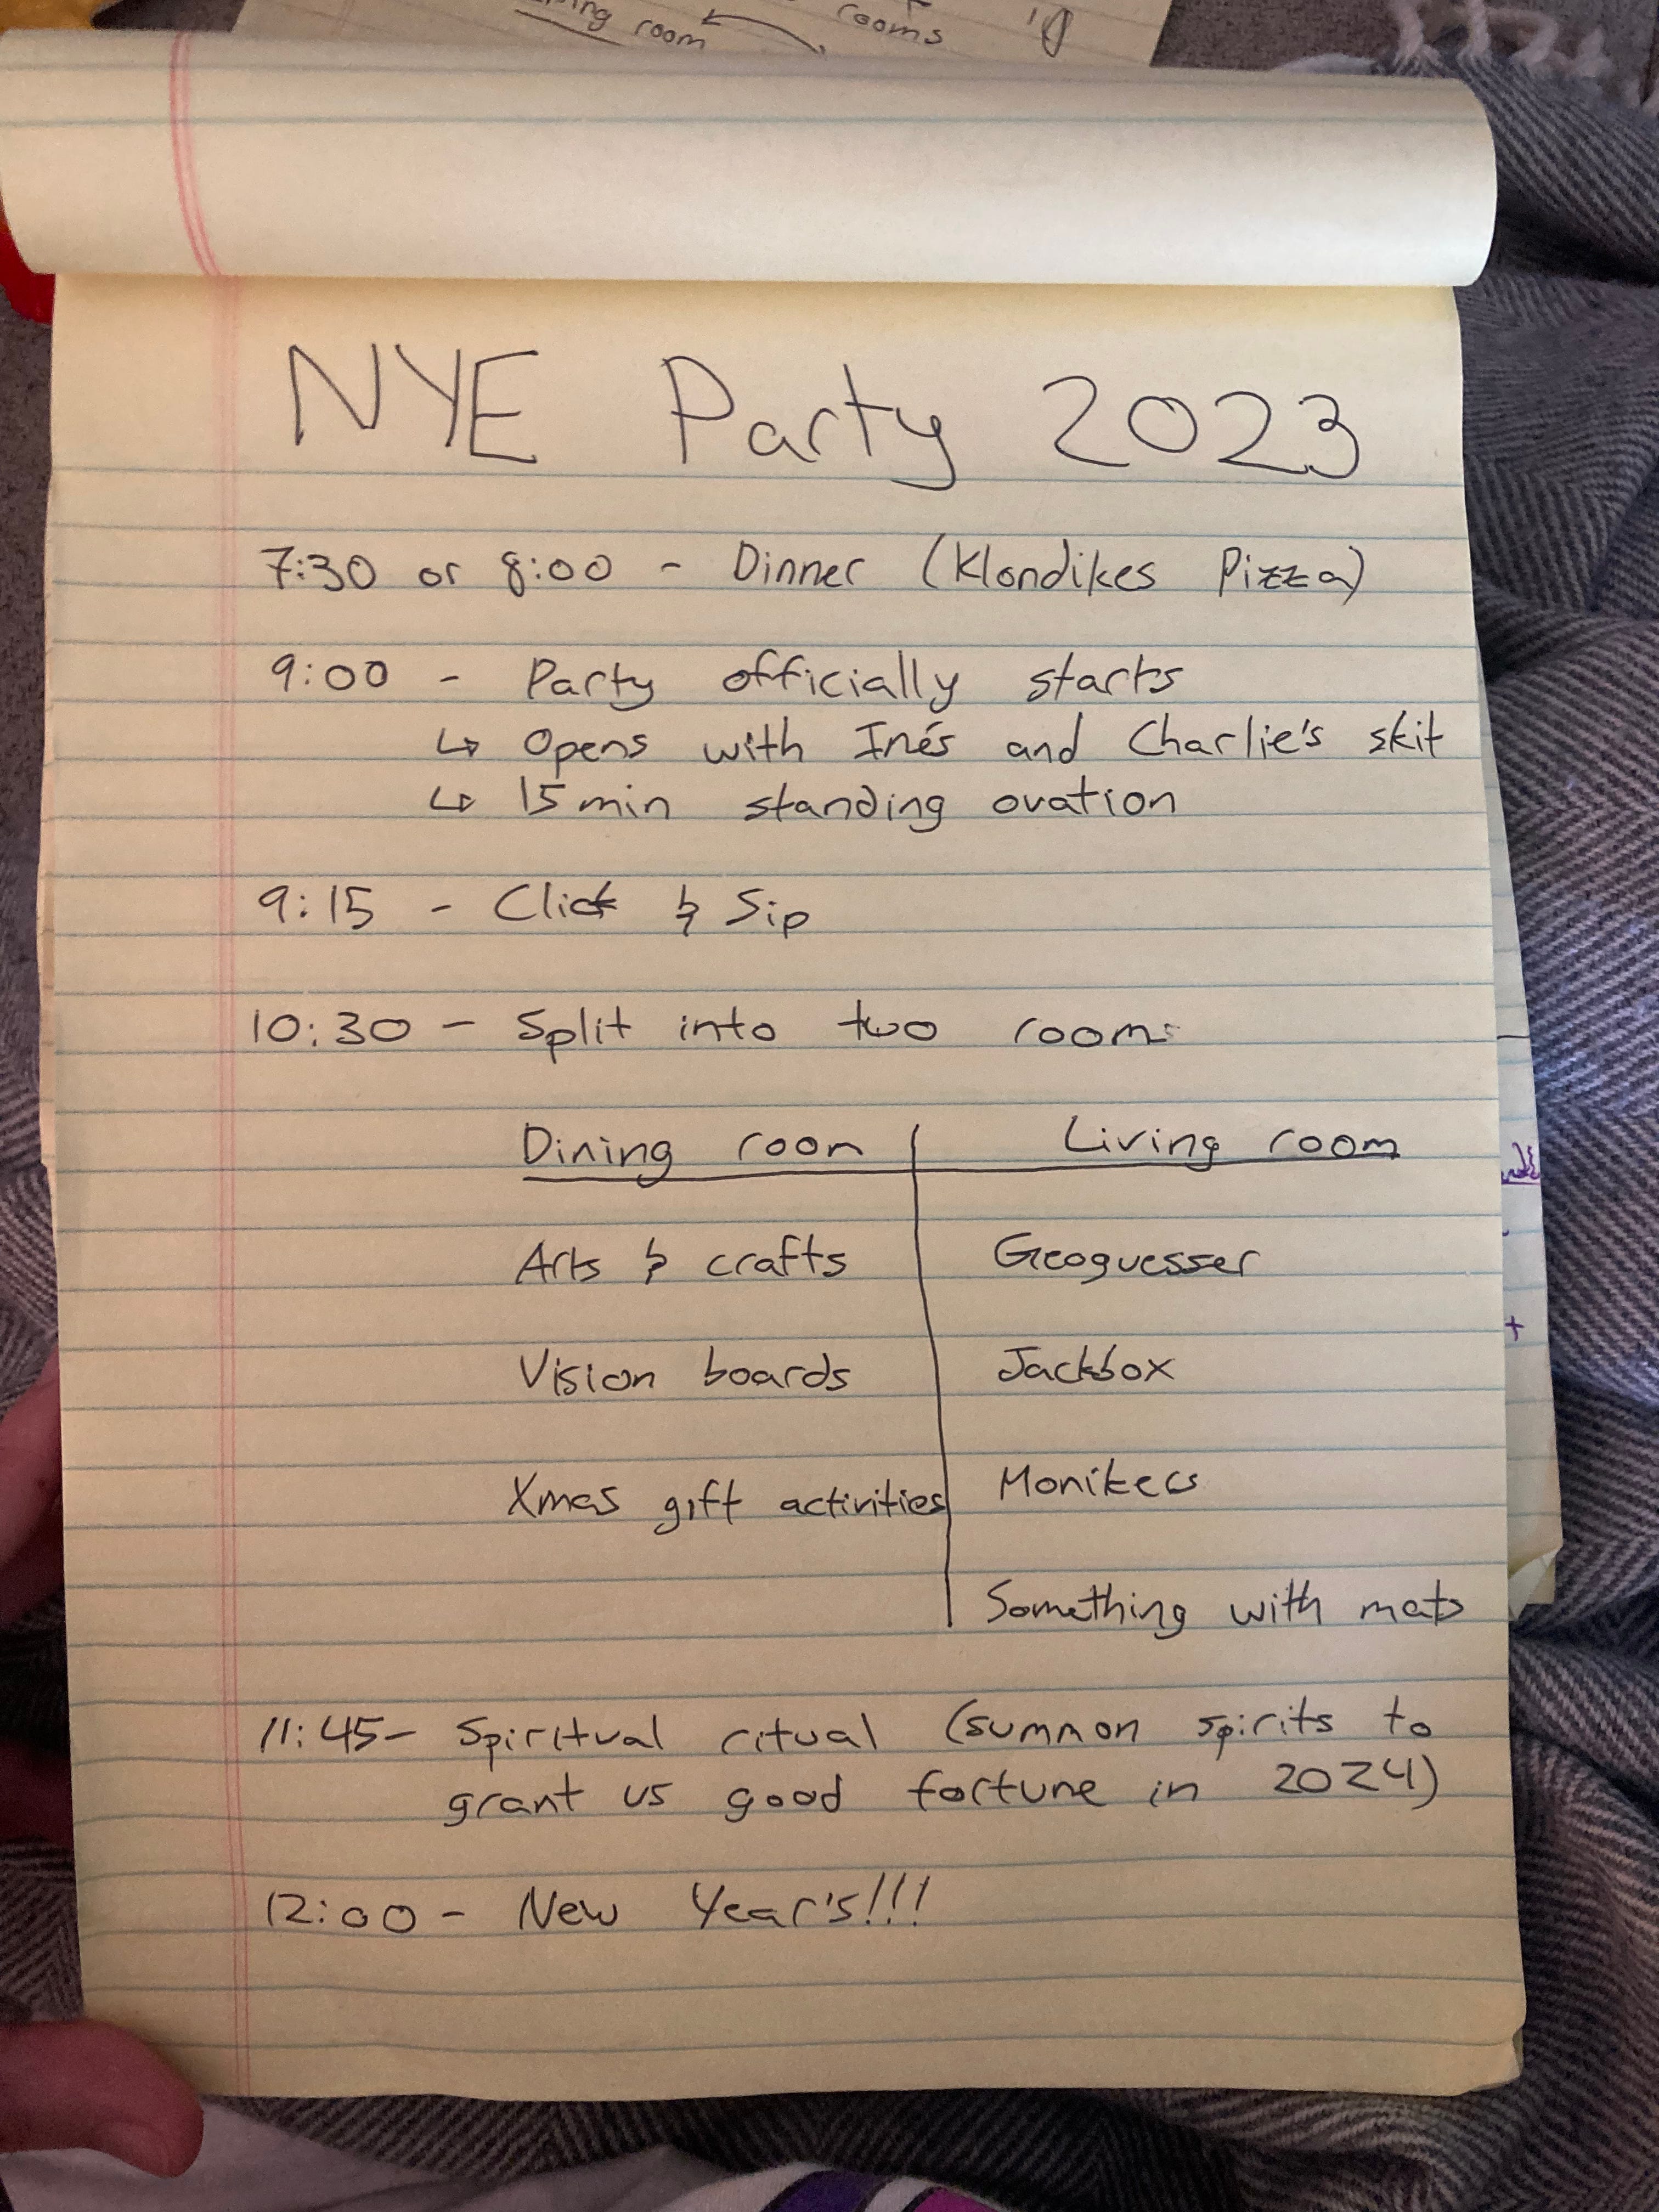 room
rooms
NYE Party 2023
7:30 or 8:00 - Dinner (Klondikes Pizza)
9:00 - Party officially starts
↳ Opens with Inés and Charlie's skit
↳ 15 min standing ovation
9:15 - Click & Sip
10:30 - Split into two rooms
Dining room | Living room
Arts & crafts | Geoguesser
Vision boards | Jackbox
Xmas gift activities | Monikers
Something with
11:45 - Spiritual ritual (summon spirits to
grant us good fortune in 2024)
12:00 - New Year's!!!